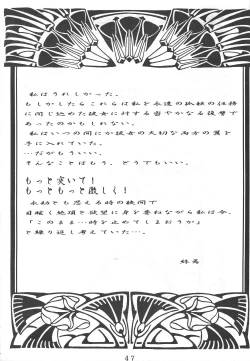 私はうれしかった。
もしかしたらこれらは私を永遠の孤独の任務
に同じ込めた彼女に対する密やかなる復讐で
あったのかもしれない。
私はいつの間にか彼女の大切な両方の翼を
手に入れていた。
…だがもういい。
そんなことはもう、どうでもいい。
もっと突いて！
もっともっと激しく！
永劫とも思える時の狭間で
目眩く絶頂と欲望に身を委ねながら私は今、
「このまま…時を止めてしまおうか」
と繰り返し考えていた…。
47